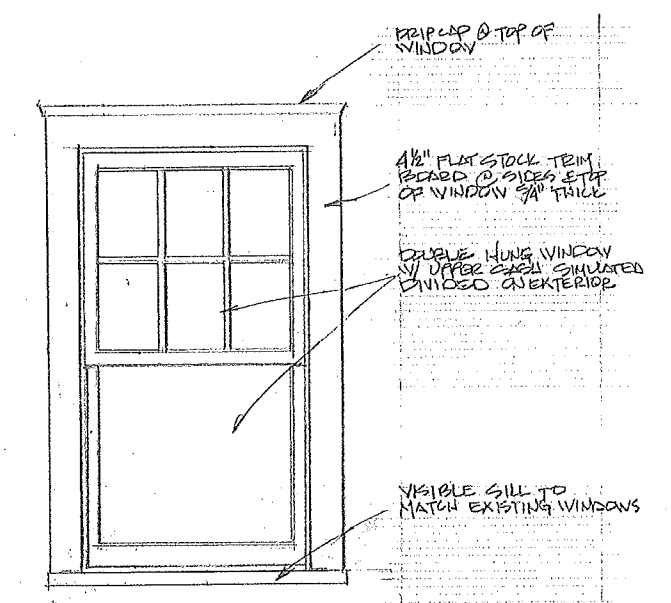 DRIP CAP @ TOP OF
WINDOW
4½" FLAT STOCK TRIM
BOARD @ SIDES & TOP
OF WINDOW 3/4" THICK
DOUBLE HUNG WINDOW
W/ UPPER SASH SIMULATED
DIVIDED ON EXTERIOR
VISIBLE SILL TO
MATCH EXISTING WINDOWS